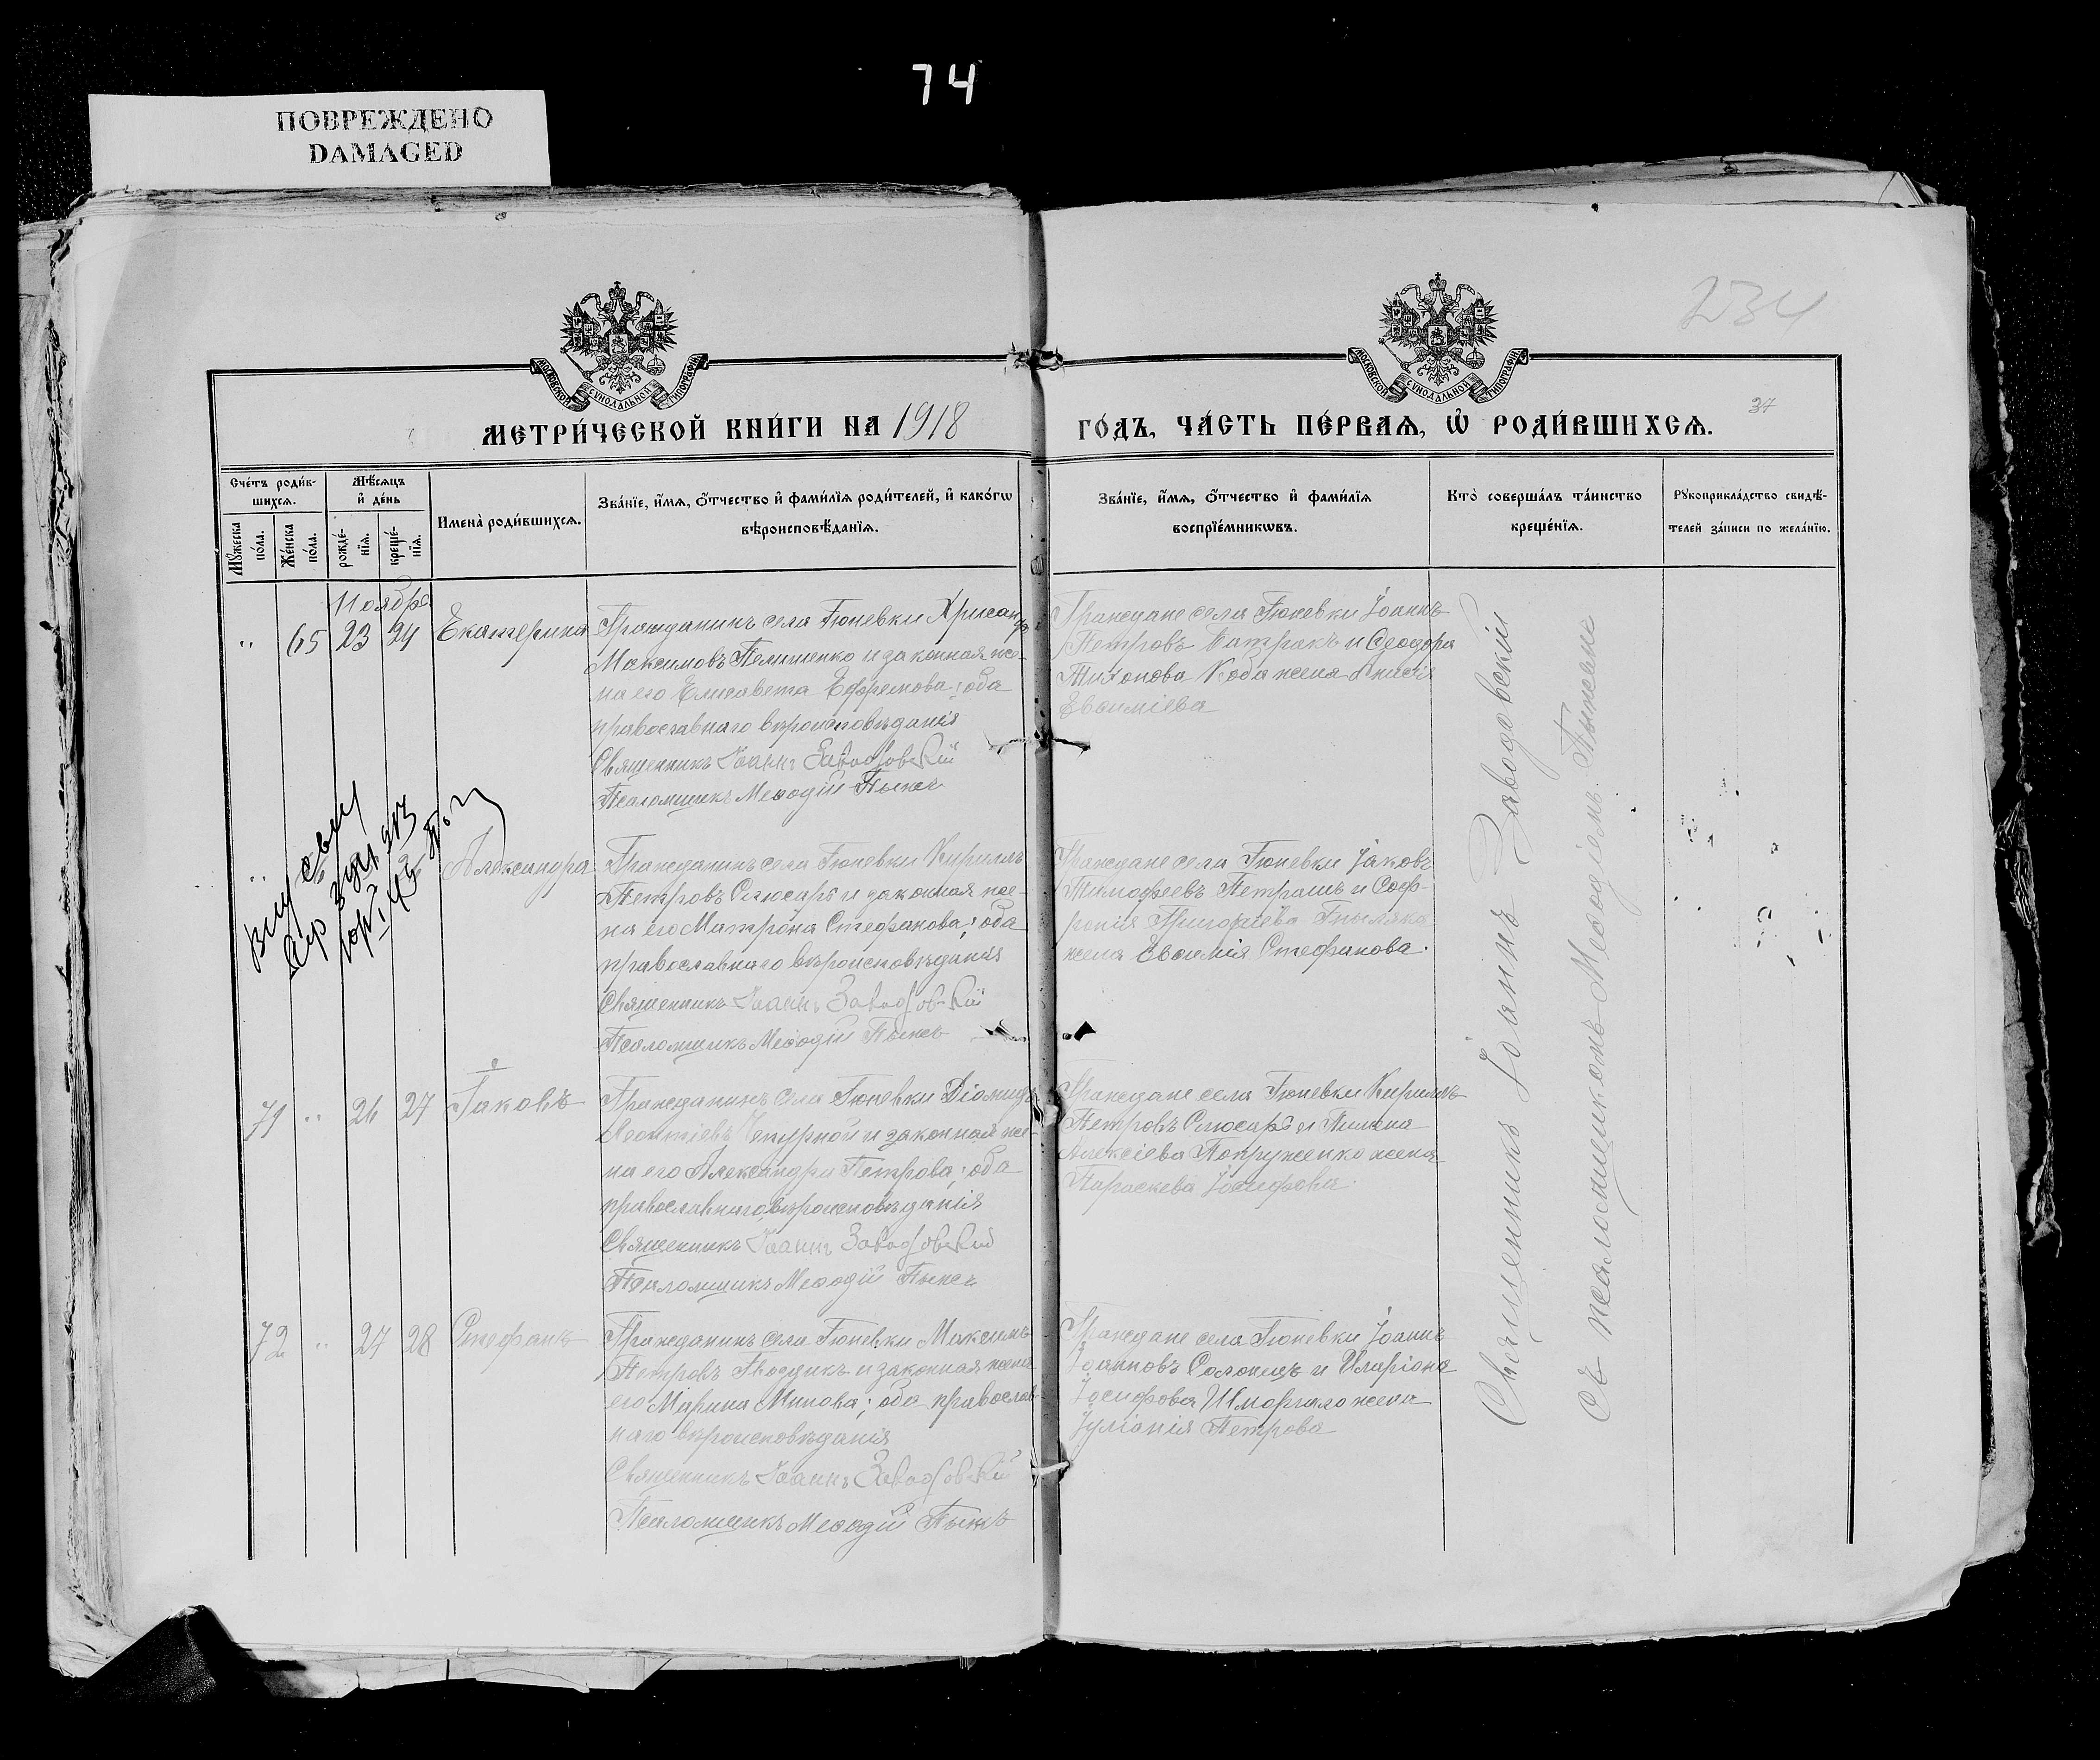 74
ПОВРЕЖДЕНО
DAMAGED
234
МОСКОВСКОЙ СѴНОДАЛЬНОЙ ТИПОГРАФІИ
МОСКОВСКОЙ СѴНОДАЛЬНОЙ ТИПОГРАФІИ
МЕТРИ́ЧЕСКОЙ КНИ́ГИ НА 1918
ГО́ДЪ, ЧА́СТЬ ПЕ́РВАѦ, Ѡ҆ РОДИ́ВШИХСѦ.
37
Сче́тъ роди́в-
шихсѧ.
Мꙋ́жеска
по́ла.
Же́нска
по́ла.
Мѣ́сѧцъ
и҆ де́нь
рожде́-
нїѧ.
креще́-
нїѧ.
Имена̀ роди́вшихсѧ.
Зва́нїе, и҆́мѧ, о҆́тчество и҆ фами́лїѧ роди́телей, и҆ како́гѡ
вѣроисповѣ́данїѧ.
Зва́нїе, и҆́мѧ, о҆́тчество и҆ фами́лїѧ
воспрїе́мникѡвъ.
Кто̀ соверша́лъ та́инство
креще́нїѧ.
Рꙋкоприкла́дство свидѣ́-
телей за́писи по жела́нїю.
Ноября
" 65 23 24 Екатерина
Гражданинъ села Гюневки Хрисанф
Максимовъ и законная же-
на его Елисавета Ефремова; оба
православнаго вѣроисповѣданія
Священникъ Іоаннъ Заводовскій
Псаломщикъ Меѳодій
Граждане села Гюневки Іоаннъ
Петровъ Батракъ и Ѳеодора
Тихонова Коба жена Анисія
Евѳиміева
" Александра
Гражданинъ села Гюневки Кириллъ
Петровъ Слюсарь и законная же-
на его Матрона Стефанова; оба
православнаго вѣроисповѣданія
Священникъ Іоаннъ Заводовскій
Псаломщикъ Меѳодій
Граждане села Гюневки Іаковъ
Тимофеевъ Петрашъ и Соф-
ронія Григоріева
жена Евѳимія Стефанова.
71 " 26 27 Іаковъ
Гражданинъ села Гюневки Діомидъ
Леонтіевъ и законная же-
на его Александра Петрова; оба
православнаго вѣроисповѣданія
Священникъ Іоаннъ Заводовскій
Псаломщикъ Меѳодій
Граждане села Гюневки Кириллъ
Петровъ Слюсарь и
Алексіева Попруженко жена
Параскева Іосифова.
72 " 27 28 Стефанъ
Гражданинъ села Гюневки Максимъ
Петровъ и законная жена
его Марина Минова; оба православ-
наго вѣроисповѣданія
Священникъ Іоаннъ Заводовскій
Псаломщикъ Меѳодій
Граждане села Гюневки Іоаннъ
Іоанновъ и Иларіона
Іосифова Шморгало жена
Іуліанія Петрова
Священникъ Іоаннъ Заводовскій
съ псаломщикомъ Меѳодіемъ